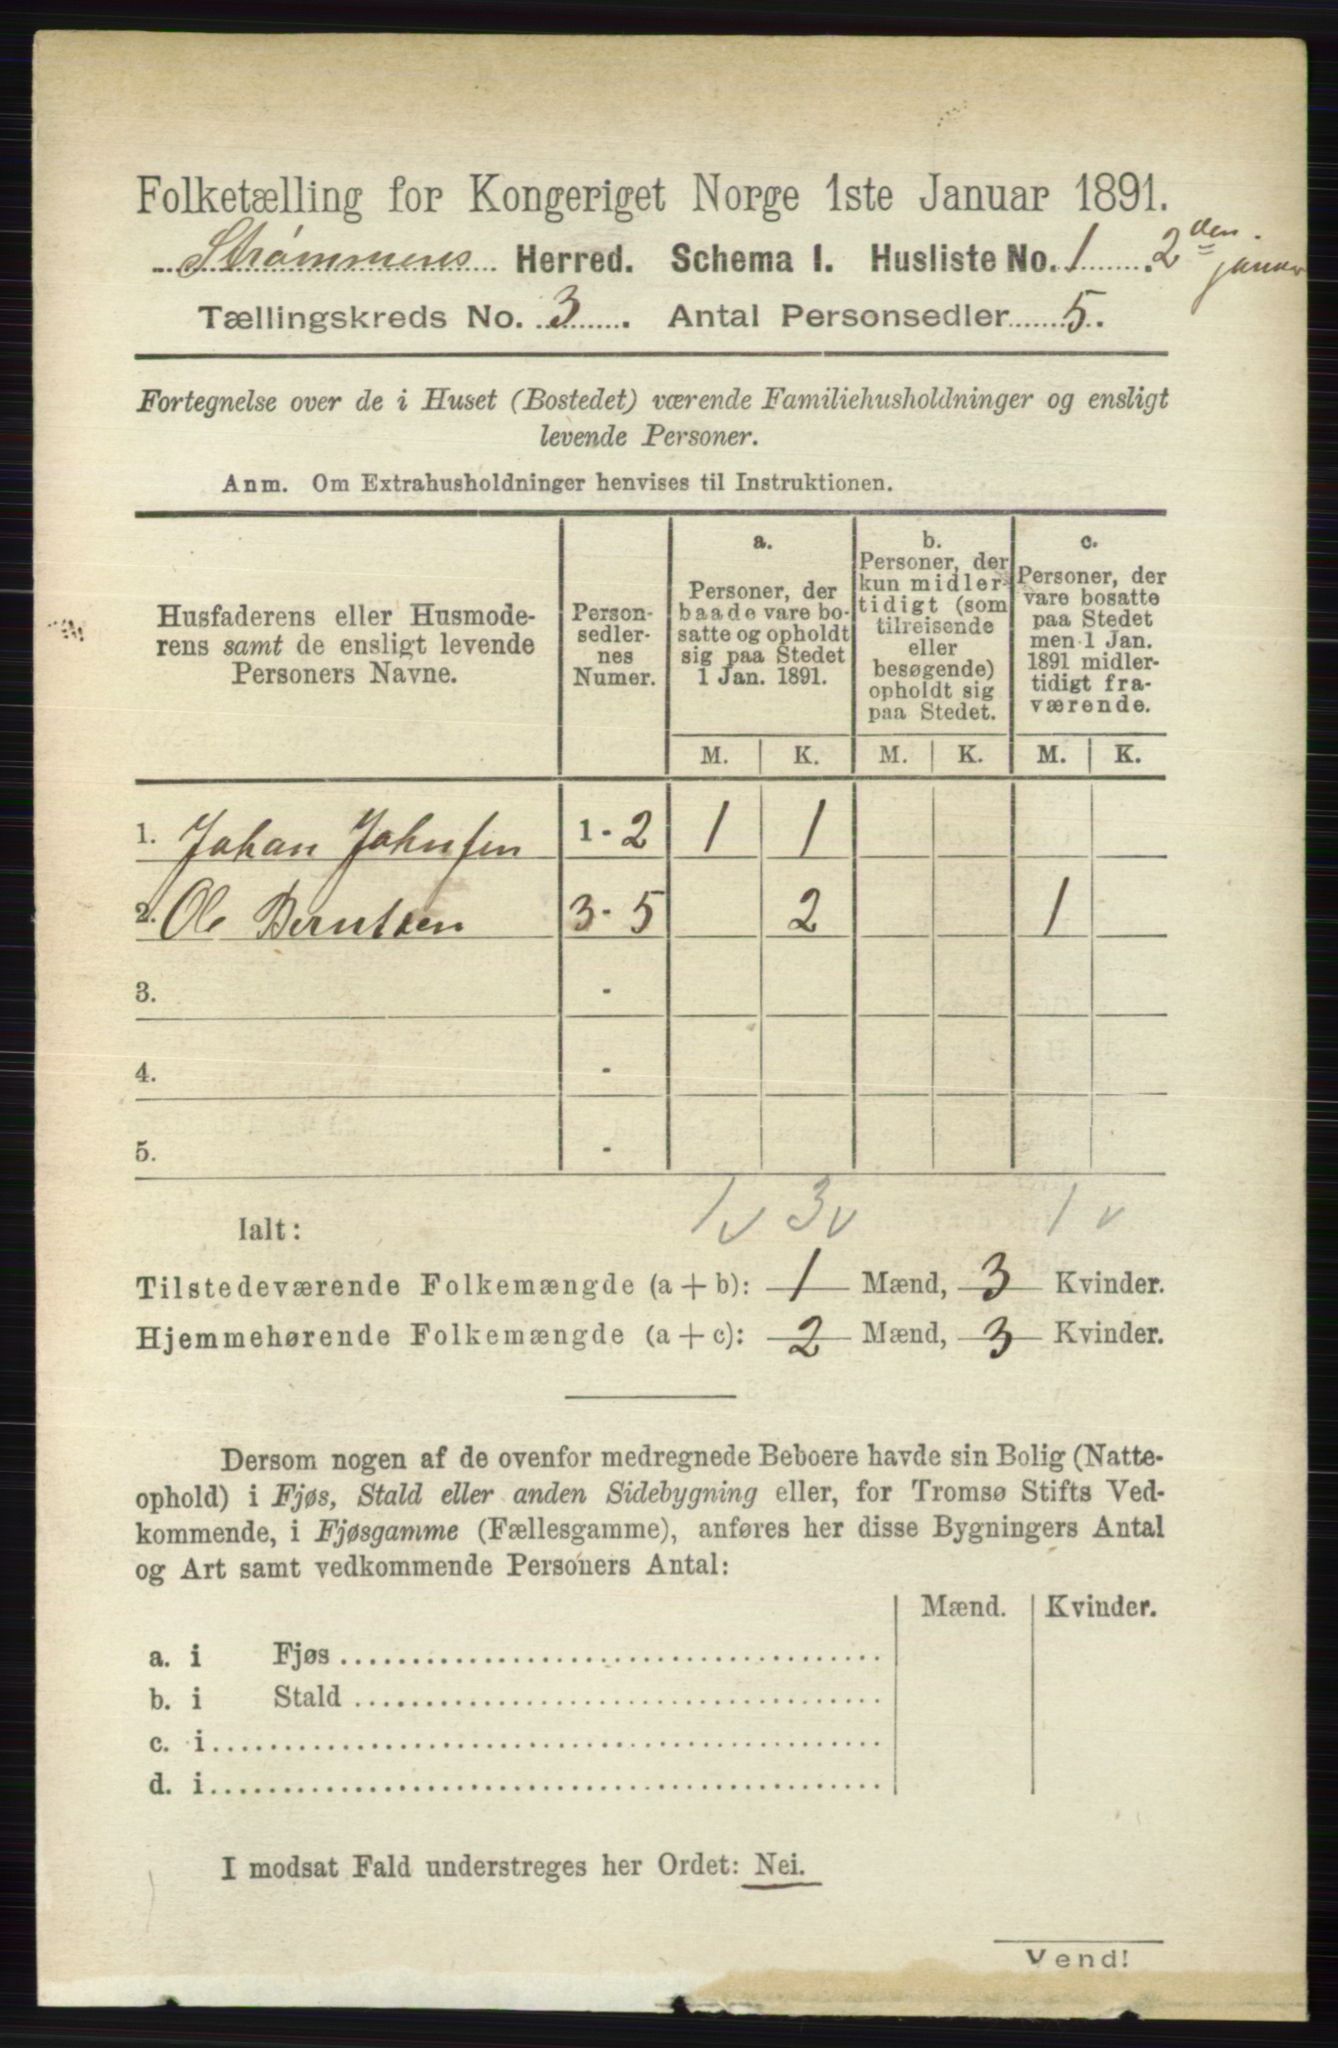 Folketælling for Kongeriget Norge 1ste Januar 1891.
Strømmens Herred. Schema I. Husliste No. 1. 2den januar
Tællingskreds No. 3. Antal Personsedler 5.
Fortegnelse over de i Huset (Bostedet) værende Familiehusholdninger og ensligt
levende Personer.
Anm. Om Extrahusholdninger henvises til Instruktionen.
Husfaderens eller Husmode-
rens samt de ensligt levende
Personers Navne.
Person-
sedler-
nes
Numer.
a.
Personer, der
baade vare bo-
satte og opholdt
sig paa Stedet
1 Jan. 1891.
b.
Personer, der
kun midler-
tidigt (som
tilreisende
eller
besøgende)
opholdt sig
paa Stedet.
c.
Personer, der
vare bosatte
paa Stedet
men 1 Jan.
1891 midler-
tidigt fra-
værende.
M. K. M. K. M. K.
1. Johan Johnsen 1-2 1 1
2. Ole Berntsen 3-5 2 1
3. -
4. -
5. -
Ialt: 1 v 3 v 1 v
Tilstedeværende Folkemængde (a + b): 1 Mænd, 3 Kvinder.
Hjemmehørende Folkemængde (a + c): 2 Mænd, 3 Kvinder.
Dersom nogen af de ovenfor medregnede Beboere havde sin Bolig (Natte-
ophold) i Fjøs, Stald eller anden Sidebygning eller, for Tromsø Stifts Ved-
kommende, i Fjøsgamme (Fællesgamme), anføres her disse Bygningers Antal
og Art samt vedkommende Personers Antal:
Mænd. Kvinder.
a. i Fjøs
b. i Stald
c. i
d. i
I modsat Fald understreges her Ordet: Nei.
Vend!